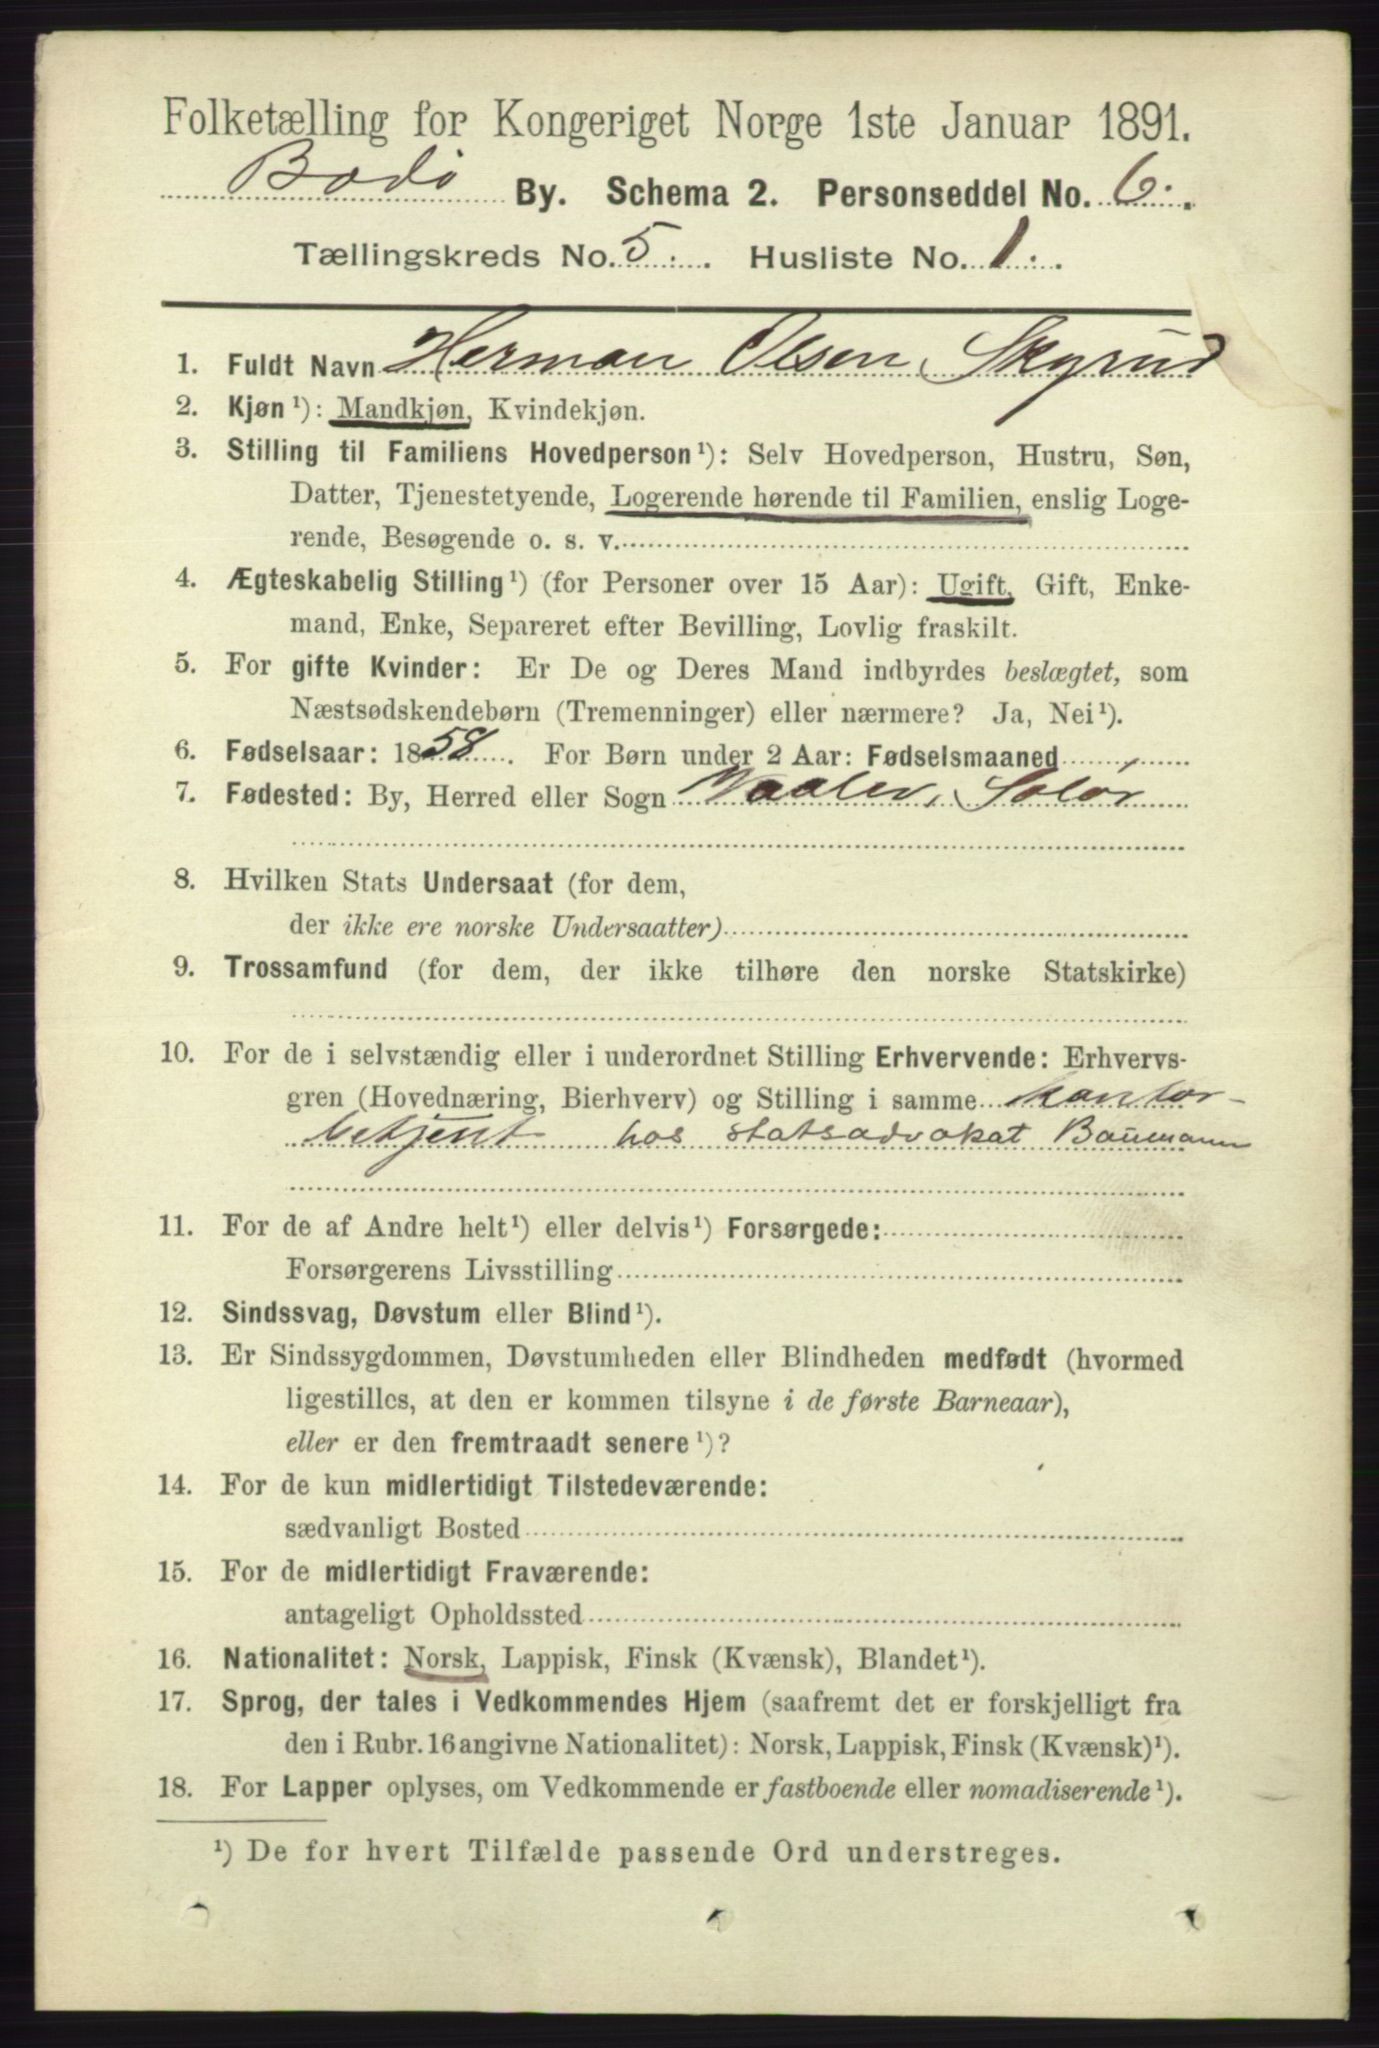 Folketælling for Kongeriget Norge 1ste Januar 1891.
Bodö By. Schema 2. Personseddel No. 6.
Tællingskreds No. 5. Husliste No. 1.
1. Fuldt Navn Herman Olsen Skyrud
2. Kjøn¹): Mandkjøn, Kvindekjøn.
3. Stilling til Familiens Hovedperson¹): Selv Hovedperson, Hustru, Søn,
Datter, Tjenestetyende, Logerende hørende til Familien, enslig Loge-
rende, Besøgende o. s. v.
4. Ægteskabelig Stilling¹) (for Personer over 15 Aar): Ugift, Gift, Enke-
mand, Enke, Separeret efter Bevilling, Lovlig fraskilt.
5. For gifte Kvinder: Er De og Deres Mand indbyrdes beslægtet, som
Næstsødskendebørn (Tremenninger) eller nærmere? Ja, Nei¹).
6. Fødselsaar: 1858. For Børn under 2 Aar: Fødselsmaaned
7. Fødested: By, Herred eller Sogn Vaaler, Solör
8. Hvilken Stats Undersaat (for dem,
der ikke ere norske Undersaatter)
9. Trossamfund (for dem, der ikke tilhøre den norske Statskirke)
10. For de i selvstændig eller i underordnet Stilling Erhvervende: Erhvervs-
gren (Hovednæring, Bierhverv) og Stilling i samme Kontor-
betjent hos statsadvokat Baumann
11. For de af Andre helt¹) eller delvis¹) Forsørgede:
Forsørgerens Livsstilling
12. Sindssvag, Døvstum eller Blind¹).
13. Er Sindssygdommen, Døvstumheden eller Blindheden medfødt (hvormed
ligestilles, at den er kommen tilsyne i de første Barneaar),
eller er den fremtraadt senere¹)?
14. For de kun midlertidigt Tilstedeværende:
sædvanligt Bosted
15. For de midlertidigt Fraværende:
antageligt Opholdssted
16. Nationalitet: Norsk, Lappisk, Finsk (Kvænsk), Blandet¹).
17. Sprog, der tales i Vedkommendes Hjem (saafremt det er forskjelligt fra
den i Rubr. 16 angivne Nationalitet): Norsk, Lappisk, Finsk (Kvænsk)¹).
18. For Lapper oplyses, om Vedkommende er fastboende eller nomadiserende¹).
¹) De for hvert Tilfælde passende Ord understreges.